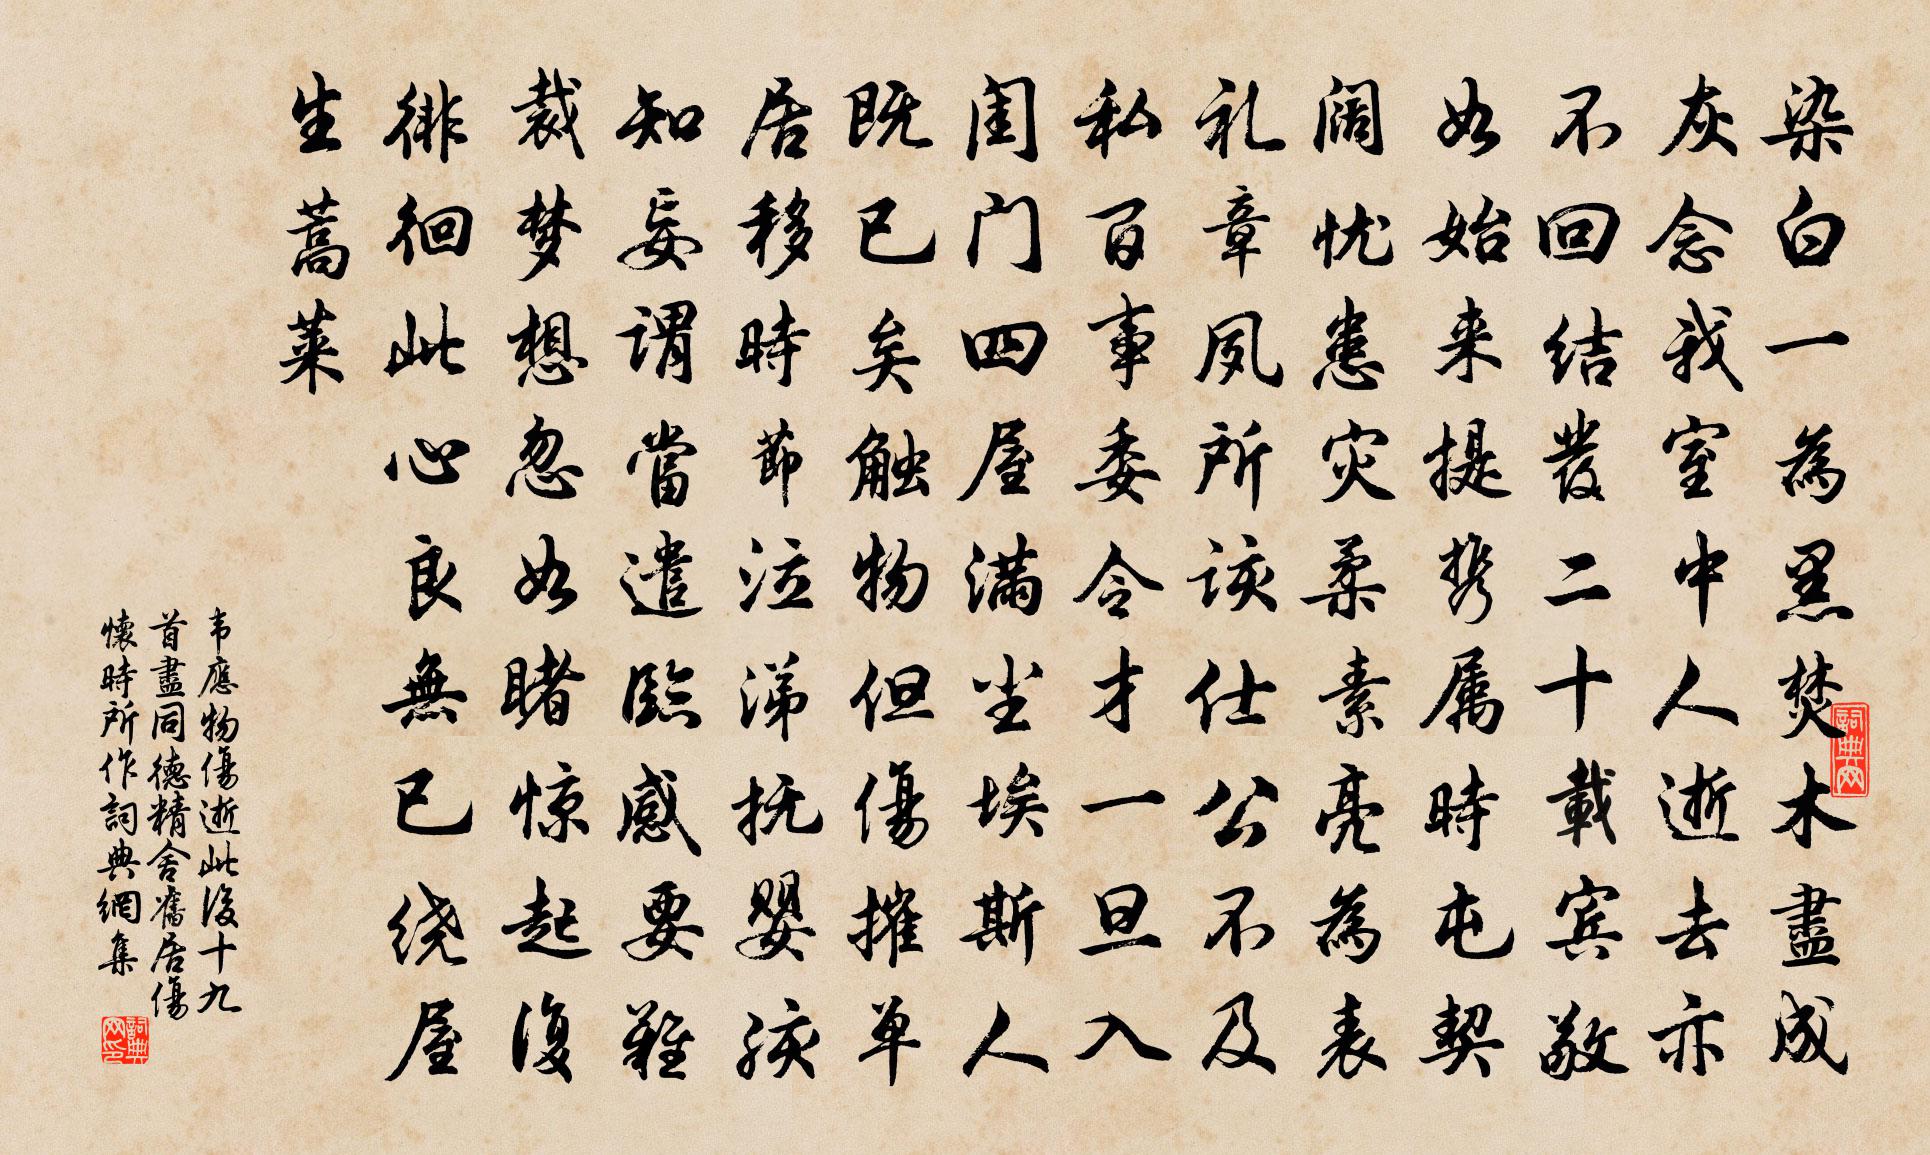 染白一為黑焚木盡成
灰念我室中人逝去亦
不回结發二十載宾敬
如始来提携属時屯契
阔忧患灾柔素亮為表
礼章夙所该仕公不及
私百事委令才一旦入
闺门四屋满尘埃斯人
既已矣触物但傷摧单
居移時節泣涕抚婴孩
知妄謂當遣臨感要難
裁梦想忽如睹惊起復
徘徊此心良無已绕屋
生蒿莱
韦應物傷逝此後十九
首盡同德精舍舊居傷
懷時所作詞典網集
詞典网
詞典网印